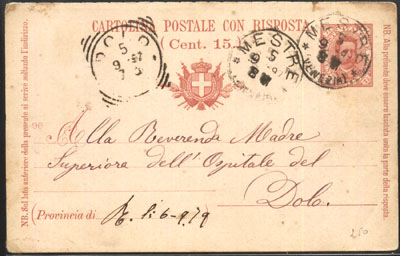 CARTOLINA POSTALE CON RISPOSTA
(Cent. 15.)
DOLO
5
MESTRE
MESTRE
Alla Reverenda Madre
Superiore dell'Ospitale del
Dolo.
(Provincia di
NB. Sul lato anteriore della presente si scrive soltanto l'indirizzo.
NB. Alla presente deve essere lasciata unita la parte della risposta
250